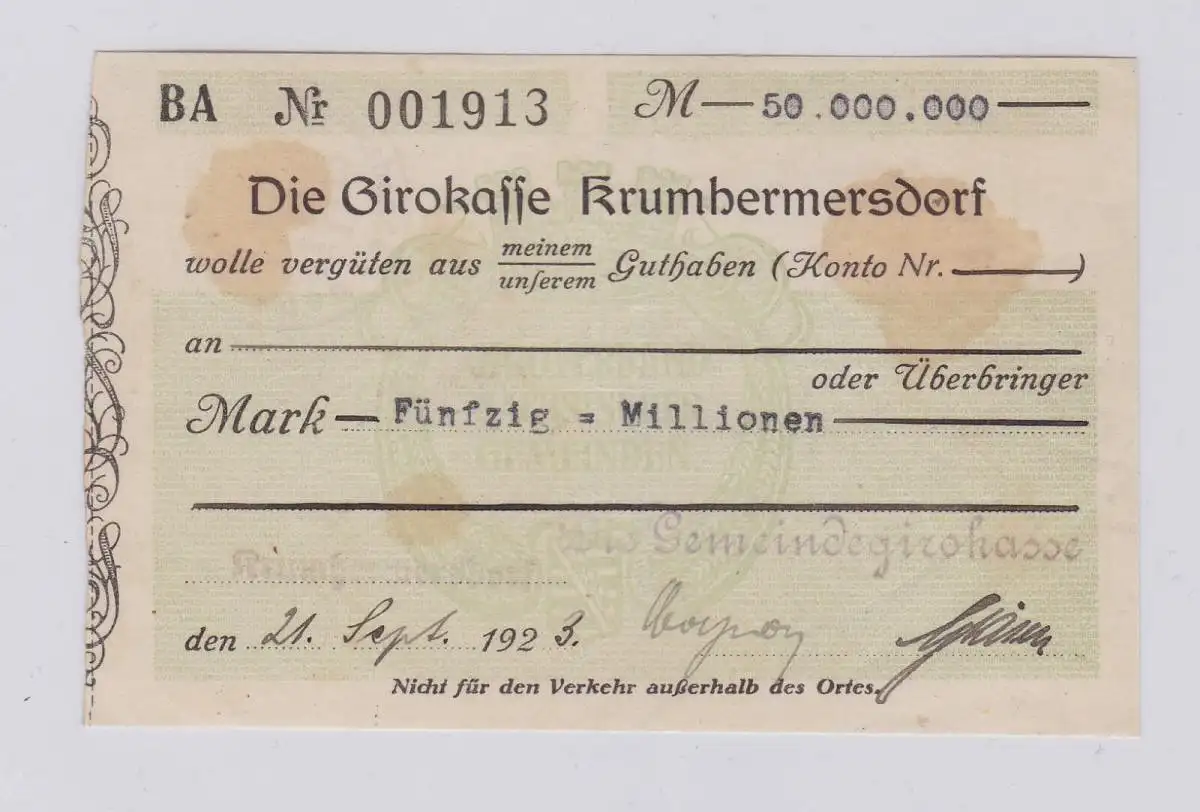 BA Nr 001913 M — 50.000.000 —
Die Girokasse Krumhermersdorf
wolle vergüten aus meinem Guthaben (Konto Nr. ———)
unserem
an
oder Überbringer
Mark — Fünfzig = Millionen —
GEMEINDEN
Die Gemeindegirokasse
Krumhermersdorf
den 21. Sept. 1923.
Nicht für den Verkehr außerhalb des Ortes.